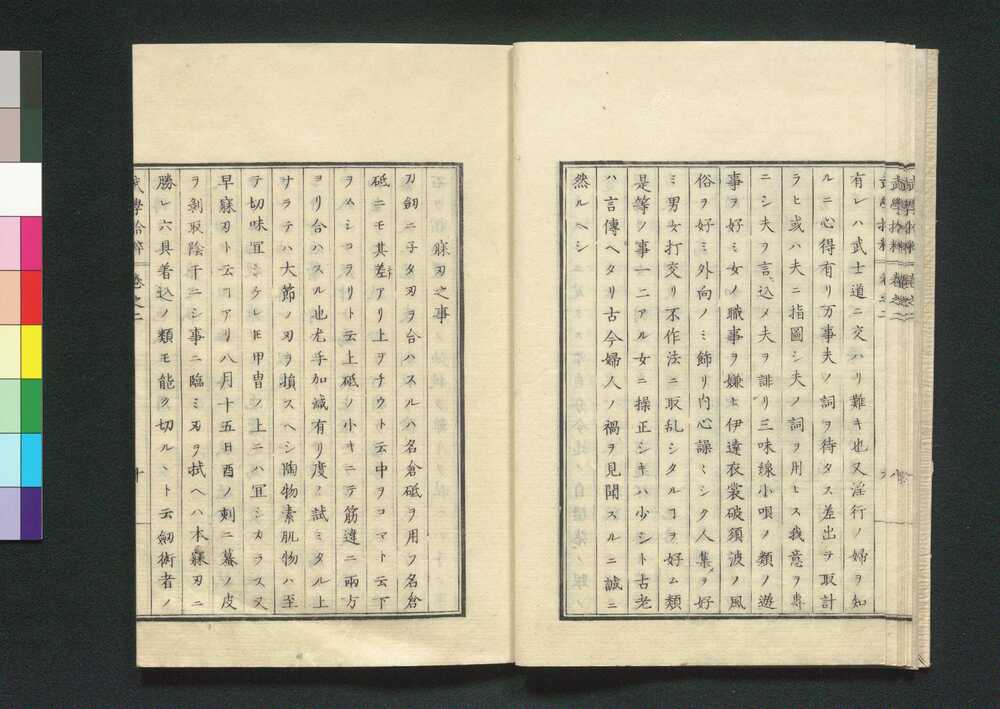 有レハ武士道ニ交ハリ難キ也又淫行ノ婦ヲ知
ルニ心得有リ万事夫ノ詞ヲ待タス差出ヲ取計
ラヒ或ハ夫ニ指圖シ夫ノ詞ヲ用ヒス我意ヲ專
ニシ夫ヲ言込メ夫ヲ誹リ三味線小唄ノ類ノ遊
事ヲ好ミ女ノ職事ヲ嫌ヒ伊達衣裳破須波ノ風
俗ヲ好ミ外向ノミ飾リ内心譟ミシク人集ヲ好
ミ男女打交リ不作法ニ取乱シタルヿヲ好ム類
是等ノ事一二アル女ニ操正シキハ少シト古老
ハ言傳ヘタリ古今婦人ノ禍ヲ見聞スルニ誠ニ
然ルヘシ
寐刃之事
刀劔ニ子タ刃ヲ合ハスルハ名倉砥ヲ用フ名倉
砥ニモ其差アリ上ヲチウト云中ヲコマト云下
ヲムシコヲリト云上砥ノ小キニテ筋違ニ兩方
ヨリ合ハスル也尤手加減有リ度々試ミタル上
ナラテハ大節ノ刃ヲ損スヘシ陶物素肌物ハ至
テ切味冝シケレ𪜈甲冑ノ上ニハ冝シカラス又
早寐刃ト云ヿアリ八月十五日酉ノ刺ニ蟇ノ皮
ヲ剥取陰干ニシ事ニ臨ミ刃ヲ拭ヘハ本寐刃ニ
勝レ六具着込ノ類モ能ク切ルヽト云劔術者ノ
武學拾粹 卷之二 十